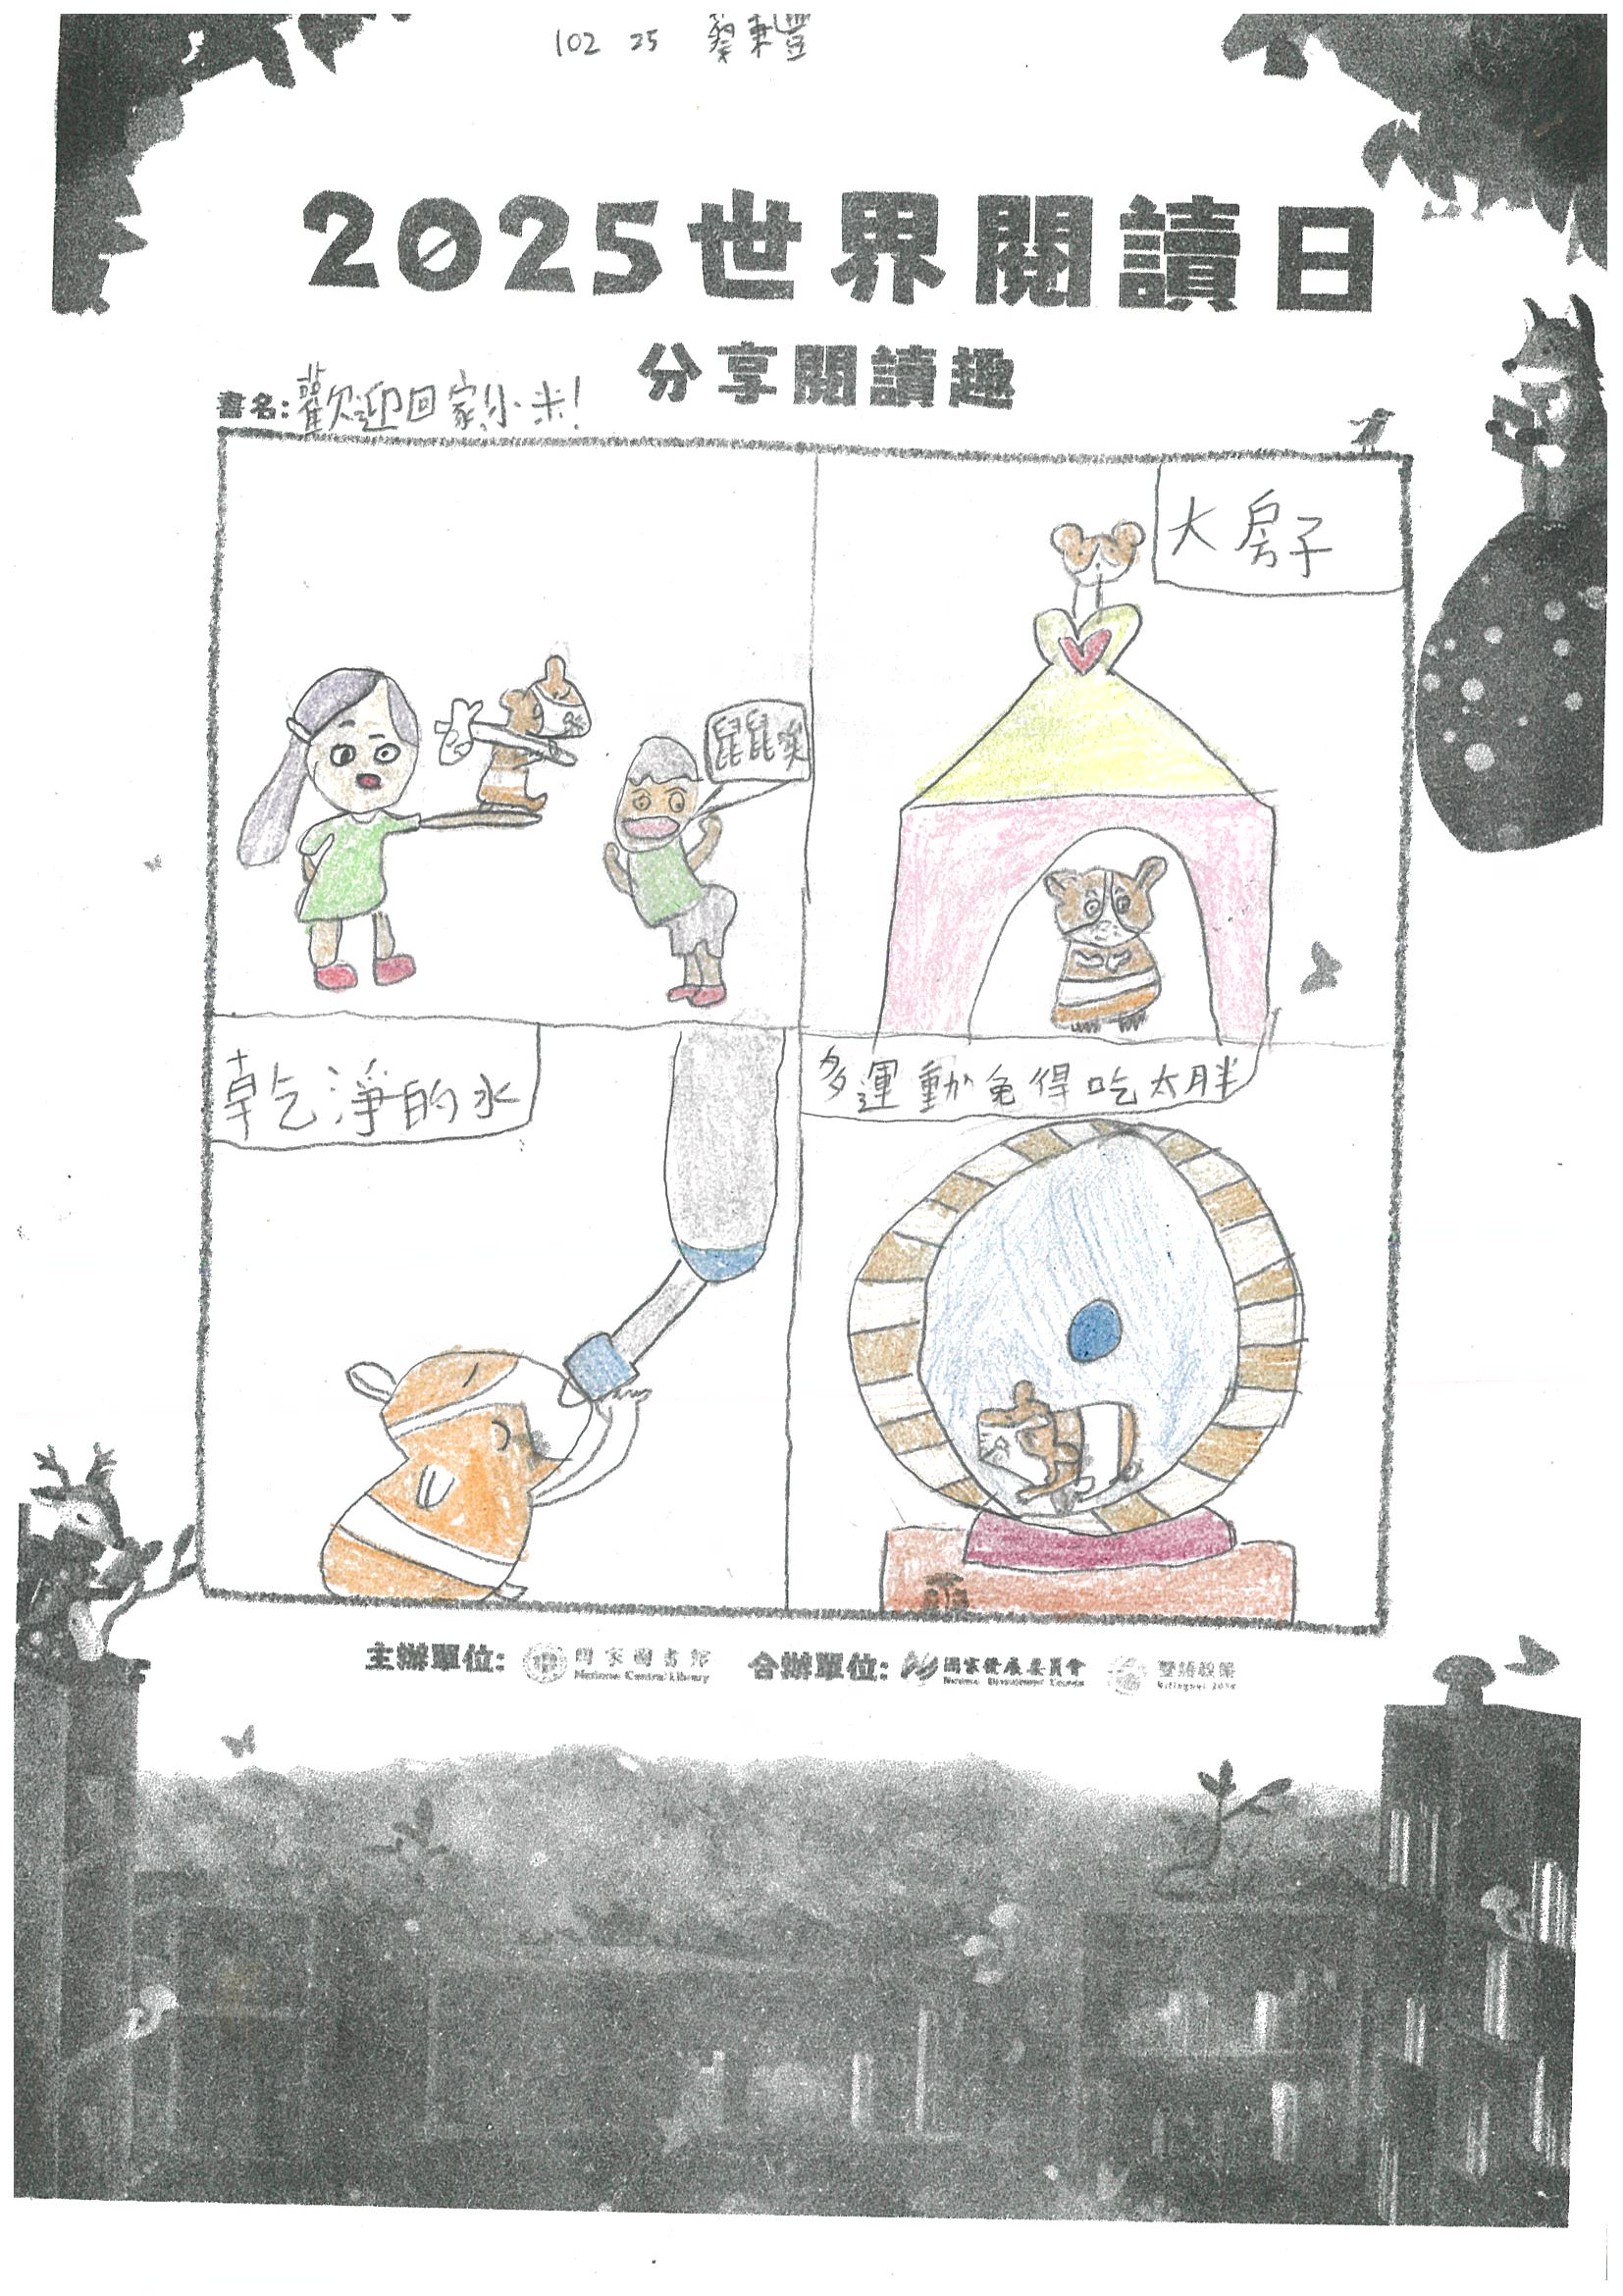 102 25 蔡秉豐
2025世界閱讀日
分享閱讀趣
書名:歡迎回家,小米!
鼠鼠
大房子
乾淨的水
多運動免得吃太胖
主辦單位: 國家圖書館 合辦單位: 國家發展委員會 雙語政策
National Central Library National Development Council Bilingual 2030